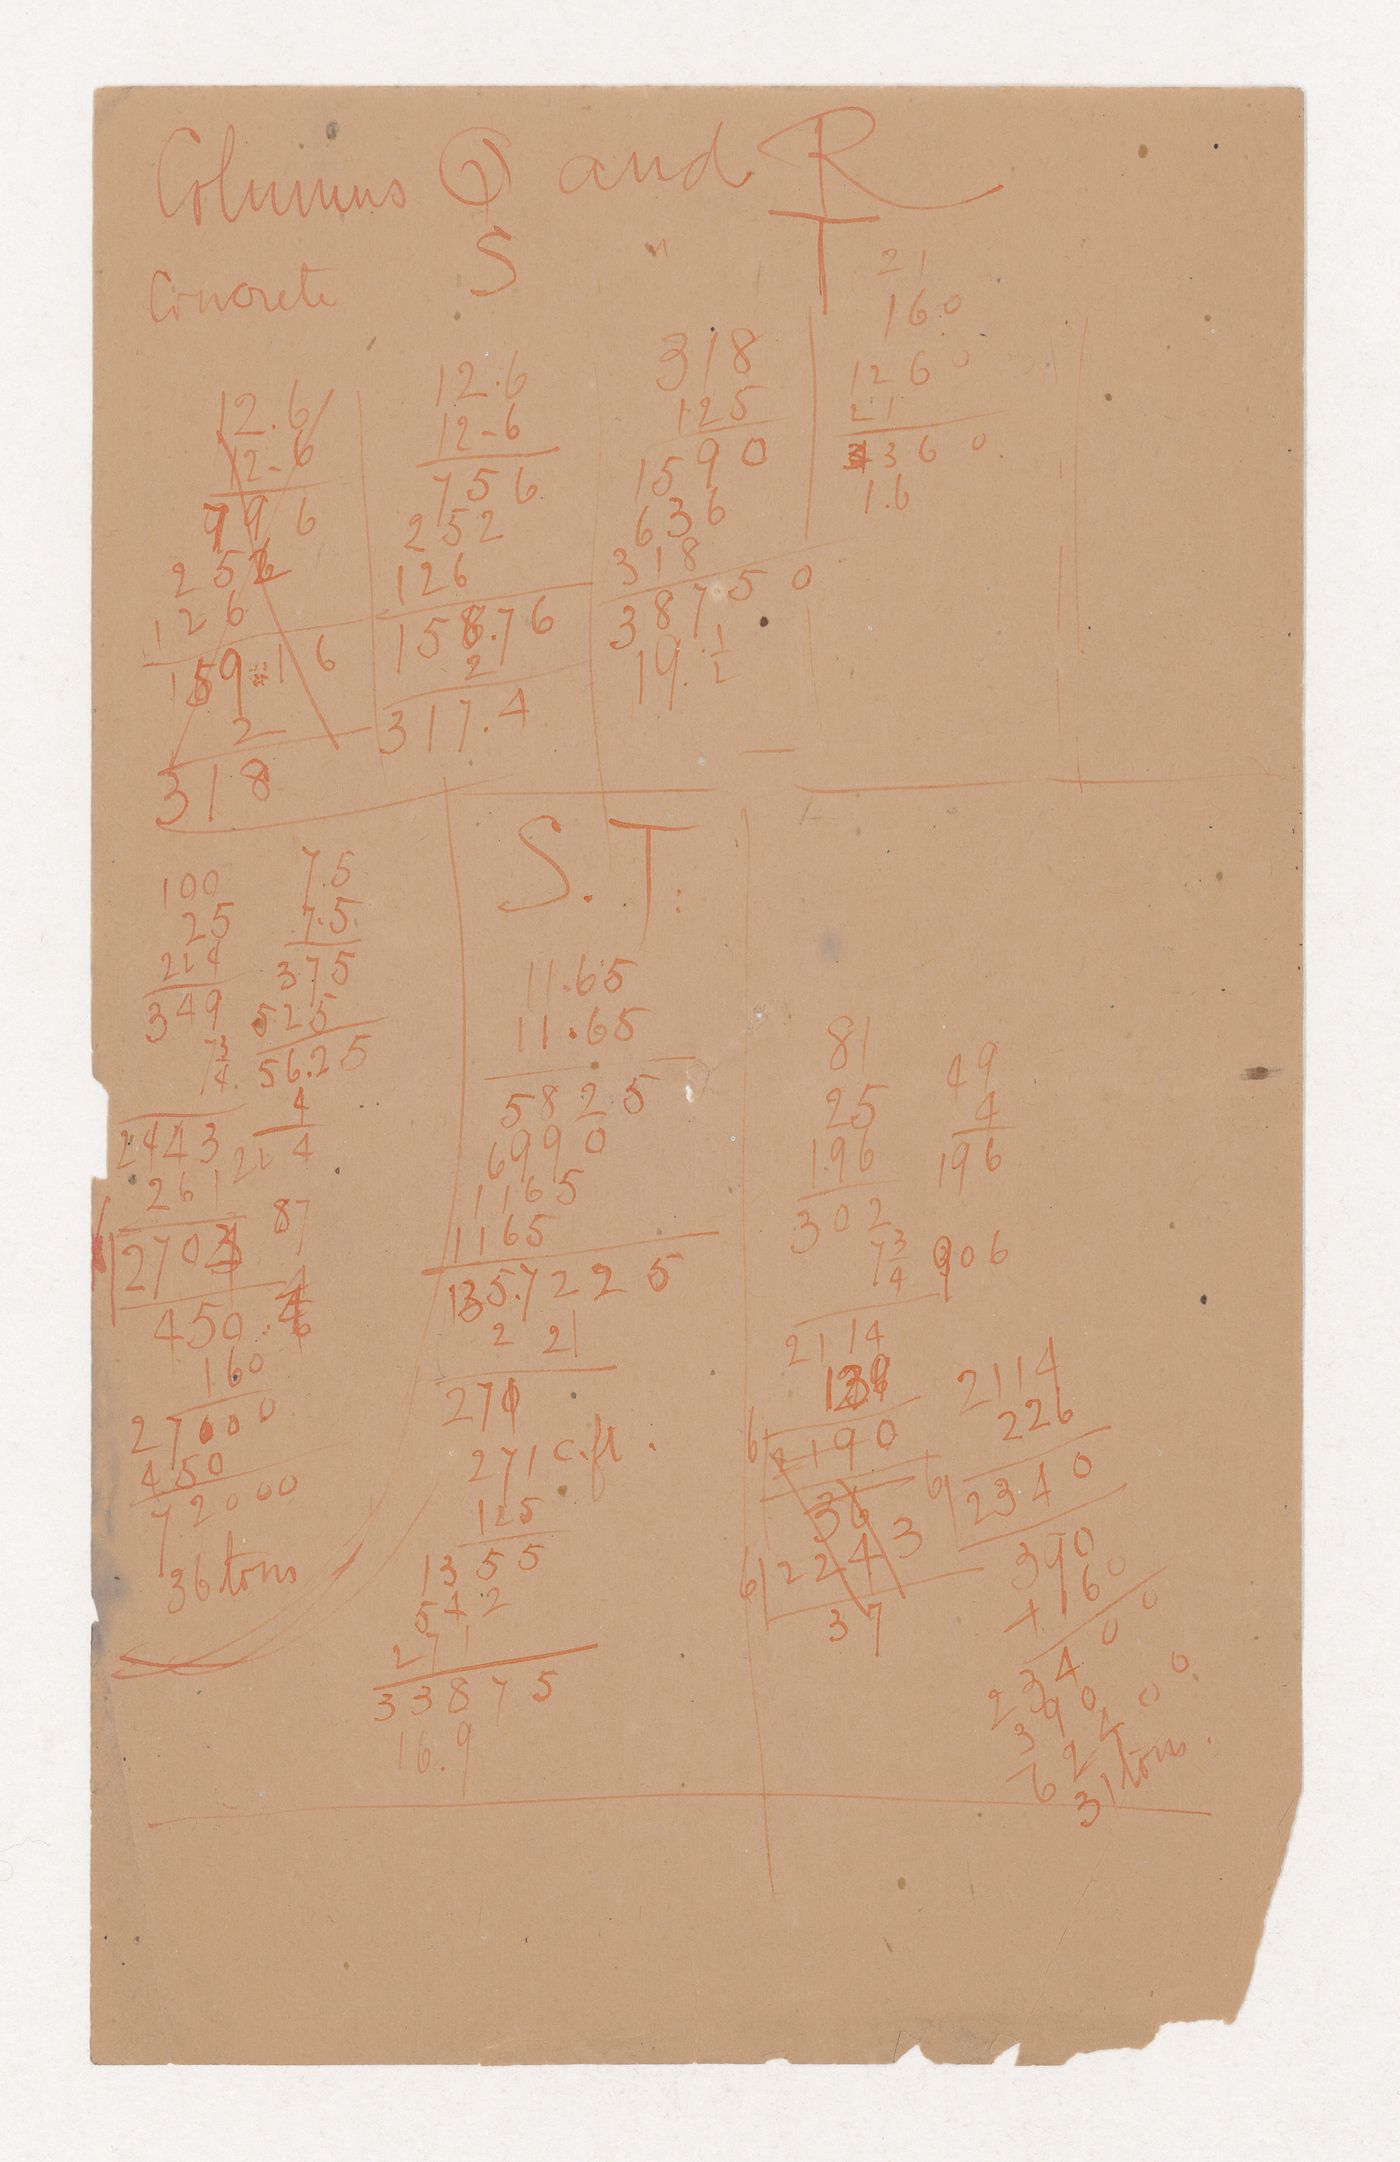 Columns Q and R
S " T
Concrete
12.6
12-6
796
252
126
159.16
2
318
12.6
12-6
756
252
126
158.76
2
317.4
318
125
1590
636
318
38750
19.½
21
160
1260
21
3360
1.6
100
25
224
349
7¾
2443
261
2704
450.4
160
27000
450
72000
36 tons
7.5
7.5
375
525
56.25
4
224
87
S. T.
11.65
11.65
5825
6990
1165
1165
135.7225
2 21
271
271 c.ft.
125
1355
542
271
33875
16.9
81
25
196
302
7¾
2114
6 2190
36
6 2243
37
49
4
196
906
2114
226
6 2340
390
+ 160
23400
390
62400
31 tons.